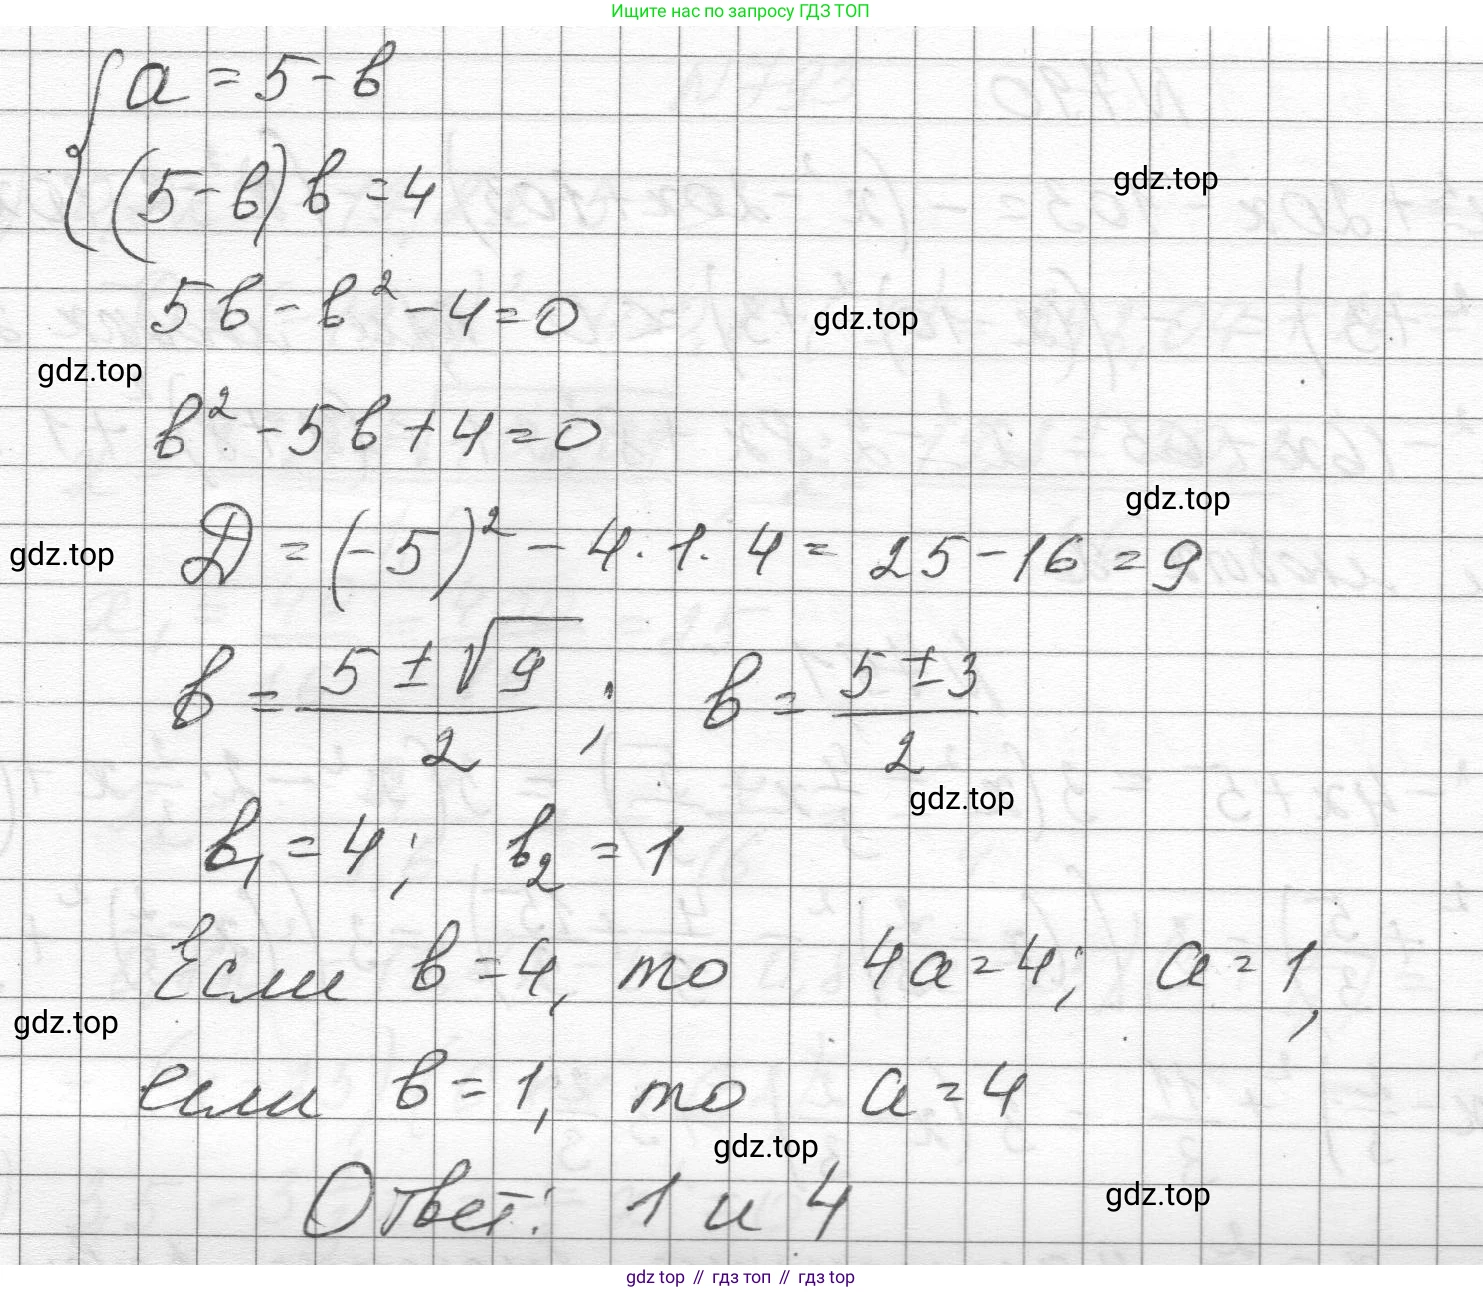 Ищите нас по запросу ГДЗ ТОП
{ a = 5 - в
(5 - в) в = 4
gdz.top
5в - в² - 4 = 0
gdz.top
gdz.top
в² - 5в + 4 = 0
gdz.top
Д = (-5)² - 4 · 1 · 4 = 25 - 16 = 9
gdz.top
в = (5 ± √9)/2 ; в = (5 ± 3)/2
gdz.top
в₁ = 4; в₂ = 1
Если в = 4, то 4a = 4; a = 1,
gdz.top
если в = 1, то a = 4
gdz.top
Ответ: 1 и 4
gdz.top
gdz top // гдз топ // gdz top